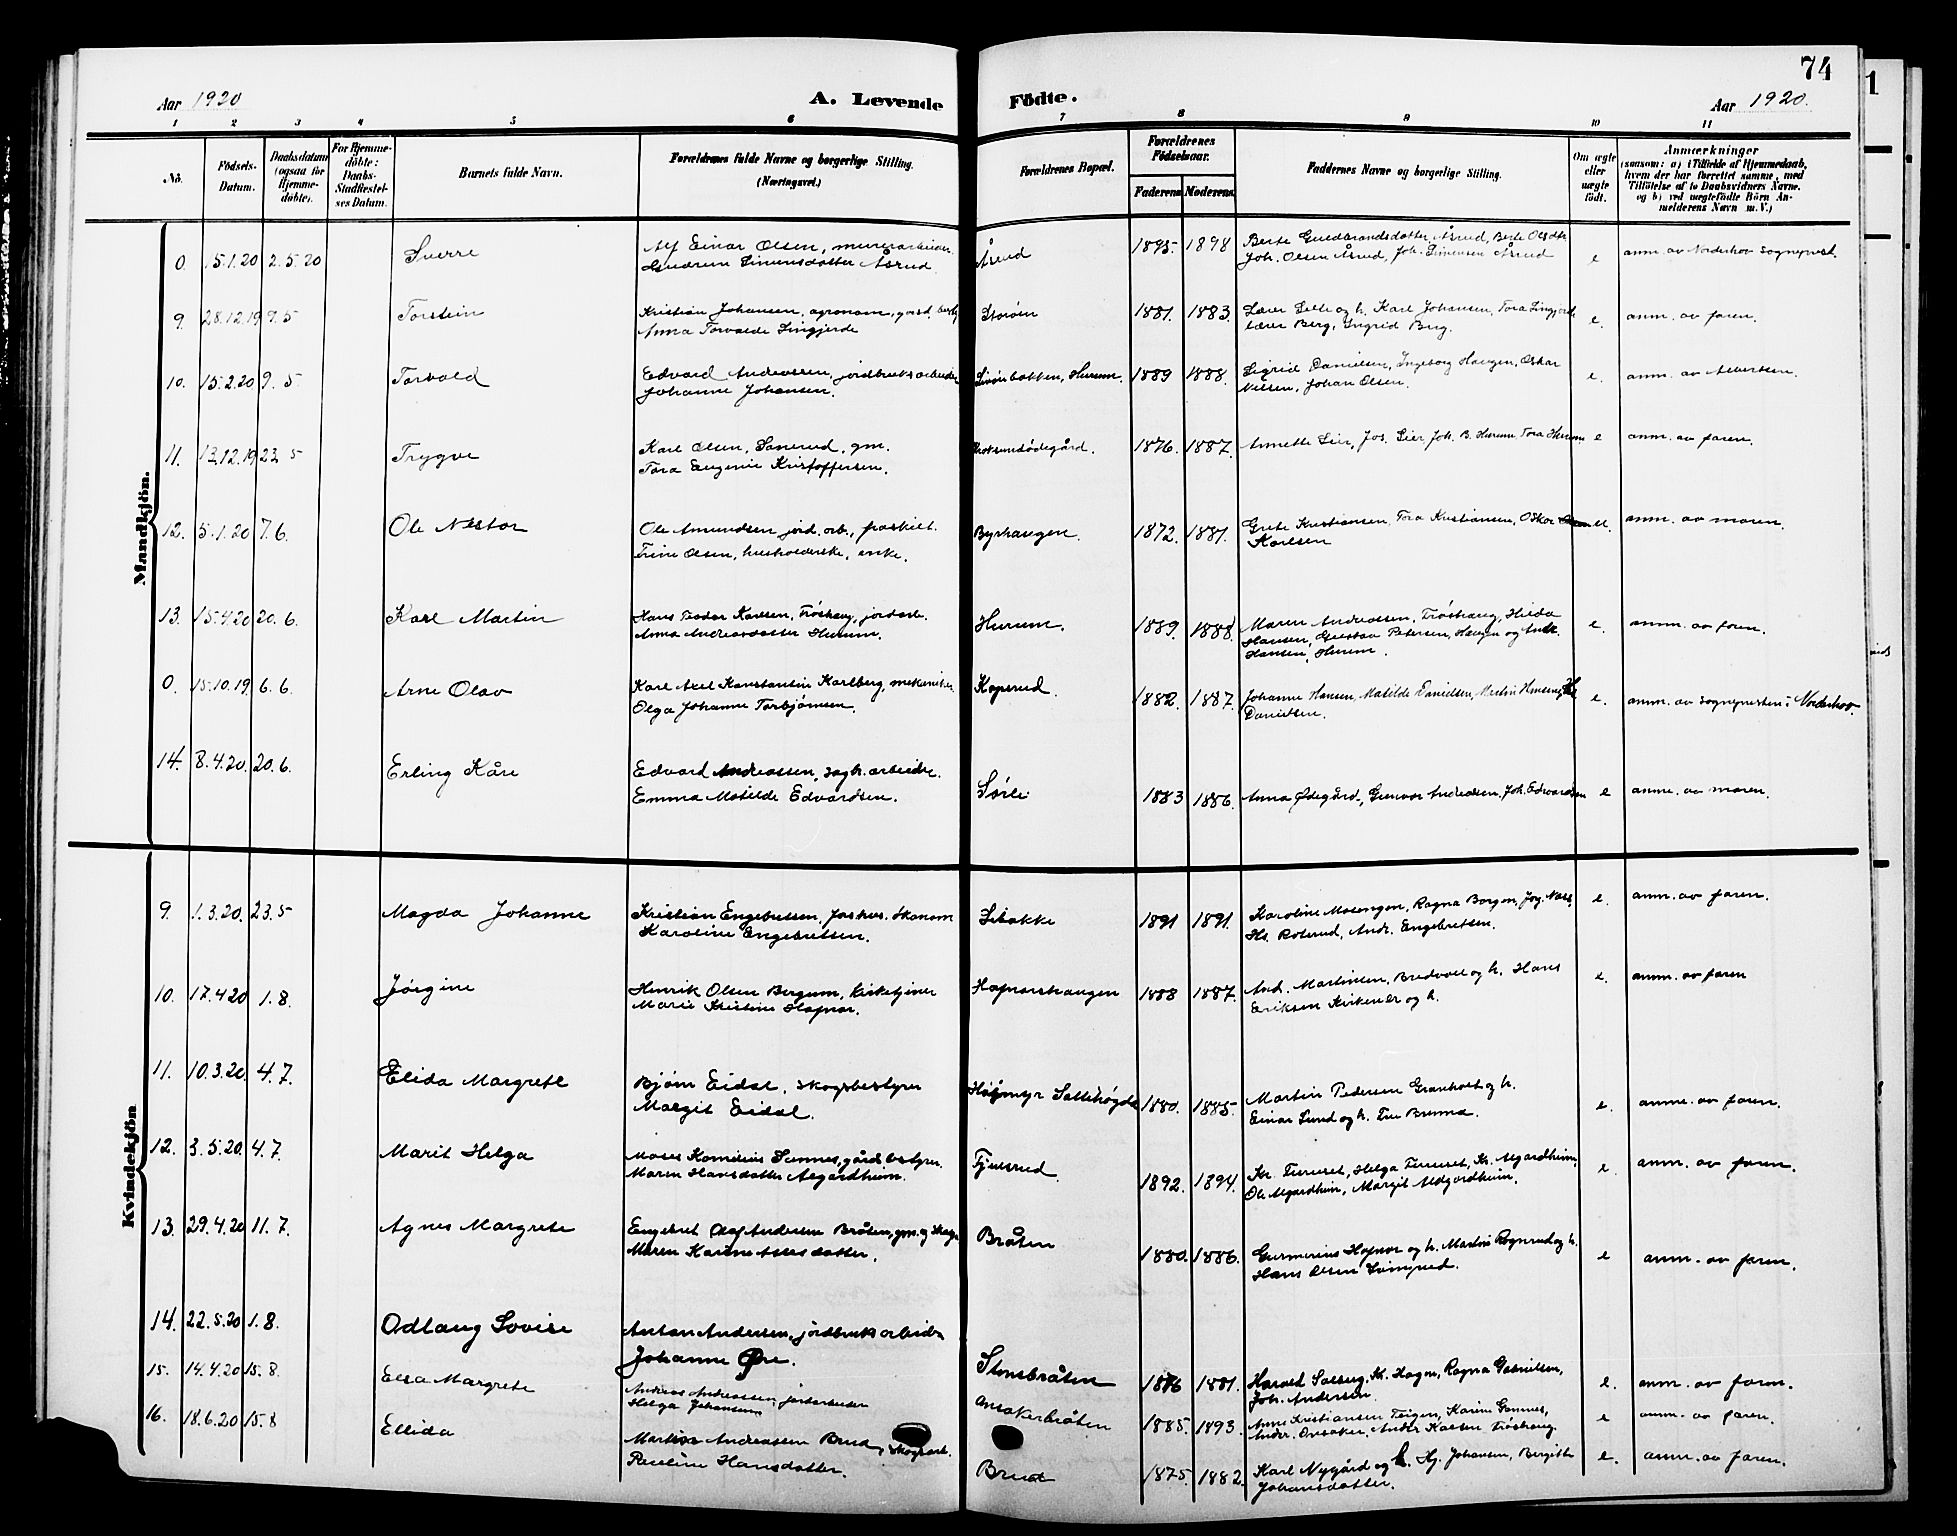 74
Aar 1920
A. Levende Födte.
Aar 1920.
1 2 3 4 5 6 7 8 9 10 11
No.
Födsels-
Datum.
Daabsdatum
(ogsaa for
Hjemme-
döbte).
For Hjemme-
döbte:
Daabs-
Stadfæstel-
ses Datum.
Barnets fulde Navn.
Forældrenes fulde Navne og borgerlige Stilling.
(Næringsvei.)
Forældrenes Bopæl.
Forældrenes
Födselsaar.
Faderens Moderens
Faddernes Navne og borgerlige Stilling.
Om ægte
eller
uægte
födt.
Anmærkninger
(saasom: a) i Tilfælde af Hjemmedaab,
hvem der har forrettet samme, med
Tilföielse af to Daabsvidners Navne.
og b) ved uægtefödte Börn An-
melderens Navn m. V.)
Mandkjön.
0. 15.1.20 2.5.20 Sverre
Alf Einar Olsen, murerarbeider
Gudrun Simensdatter Åsrud.
Åsrud 1895- 1898
Berte Guldbrandsdatter Åsrud, Berte Olsdtr.
Joh. Olsen Åsrud, Joh. Simensen Åsrud
e anm. av Norderhov sogneprest.
9. 28.12.19 9.5 Torstein
Kristian Johansen, agronom, gårdbest.
Anna Torvalda Lingjerde
Storøen 1881. 1883.
Lærer Lelle og h. Karl Johansen, Tora Lingjerde
lærer Berg, Ingrid Berg.
e. anm. av faren.
10. 15.2.20 9.5 Torvald
Edvard Andreassen, jordbruksarbeider
Johanne Johansen.
Svøibakken, Hurum. 1889 1888.
Sigrid Danielsen, Ingeborg Haugen, Oskar
Nilsen, Johan Olsen.
e. anm. av Albertsen.
11. 13.12.19 23.5 Trygve
Karl Olsen, Sanerud, gm.
Tora Eugenie Kristoffersen.
1876. 1887.
Annette Lier, Jos. Lier, Joh. B. Hurum, Tora Hurum
e anm. av faren.
12. 5.1.20 7.6. Ole Nestor
Ole Amundsen jord.arb., fraskilt.
Trine Olsen, husholderske, enke.
Byrhaugen. 1872. 1881.
Grete Kristiansen, Tora Kristiansen, Oskar
Karlsen
u. anm. av moren.
13. 15.4.20 20.6. Karl Martin
Hans Teodor Karlsen, Trøshaug, jordarb.
Anna Andreasdatter Hurum.
Hurum. 1889. 1888
Maren Andreassen, Trøshaug, Hilda
Hansen, Gustav Petersen, Haugen og Andr.
Hansen, Hurum.
e. anm. av faren.
0. 15.10.19 6.6. Arne Olav
Karl Axel Konstantin Karlberg, mekaniker.
Olga Johanne Torbjørnsen.
Kopsrud. 1882. 1887.
Johanne Hansen, Matilde Danielsen, Martin Hansen,
Danielsen.
e. anm. av sognepresten i Norderhov.
14. 8.4.20. 20.6. Erling Kåre
Edvard Andreassen, sagbr.arbeider.
Emma Matilde Edvardsen.
Sørli 1883 1886.
Anna Ødegård, Gunvor Andreassen, Joh. Edvardsen
e anm. av moren.
Kvindekjön
9. 1.3.20. 23.5 Magda Johanne
Kristian Engebretsen, forhus.økonom
Karoline Engebretsen.
Libakke 1891 1891.
Karoline Mosengen, Ragna Borgen, Jørg. Næss,
Hs. Roterud, Andr. Engebretsen.
e. anm. av faren.
10. 17.4.20 1.8. Jørgine
Henrik Olsen Bergum, kirketjener
Marie Kristine Hafnor.
Hafnorshaugen 1888 1887.
And. Martinsen, Bredvold og h. Hans
Eriksen Kirkener og h.
e. anm. av faren
11. 10.3.20. 4.7. Elida Margrete
Bjørn Eidal, skogbestyrer
Margit Eidal.
1880. 1885.
Martin Pedersen Granholt og h.
Einar Lund og h. Tru Bruma.
e. anm. av faren.
12. 3.5.20. 4.7. Marit Helga
Moses Kornelius Sunnes, gårdbestyrer.
Maren Hansdatter Algardheim.
Fjulsrud. 1892. 1894.
Kr. Furuset, Helga Furuset, Kr. Algardheim,
Ole Algardheim, Margit Algardheim.
e anm. av faren.
13. 29.4.20 11.7. Agnes Margrete
Engebret Olaf Andersen Bråten, gm. og skogs
Maren Karine Atlesdatter.
Bråten 1880. 1886.
Gurmerius Hafnor og h. Martin Rognrud og h.
Hans Olsen Svingrud.
e anm. av faren.
14. 22.5.20 1.8. Odlaug Lovise
Anton Andersen, jordbruksarbeider
Johanne Øre.
Stensbråten 1876 1881.
Harald Solberg, Kr. Hagen, Ragna Gabrielsen,
Joh. Andersen
e. anm. av faren.
15. 14.4.20 15.8. Elsa Margrete
Andreas Andreassen, jordarbeider
Helga Johansen
Onsakerbråten 1885. 1893.
Anne Kristiansen Teigen, Karine Gomnes,
Ander. Onsaker, Anders Karlsen Trøshaug
e anm. av faren.
16. 18.6.20 15.8 Ellida
Martin Andreassen Brua, skogsarb.
Pauline Hansdatter.
Brua 1875 1882.
Karl Nygård og h. Hj. Johansen, Bergitte
Johansdatter.
e. anm. av faren.